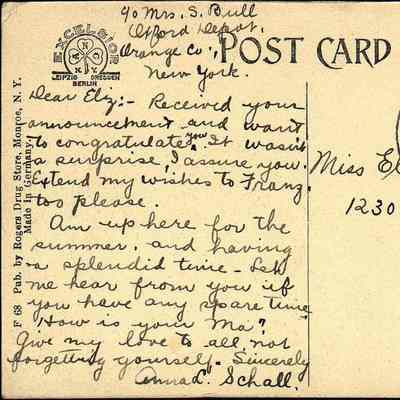 c/o Mrs. S. Bull
Oxford Depot,
Orange Co.,
New York.
POST CARD
EXCELSIOR
N. K. N. Y.
LEIPZIG DRESDEN
BERLIN
Dear Elz:- Received your
announcement and want
to congratulate you. It wasn't
a surprise, I assure you.
Extend my wishes to Franz.
too please.
Am up here for the
summer, and having
a splendid time - Let
me hear from you if
you have any spare time
How is your Ma?
Give my love to all, not
forgetting yourself. Sincerely
Anna L. Schall.
Miss El
1230
F 68 Pub. by Rogers Drug Store, Monroe, N. Y.
Made in Germany.